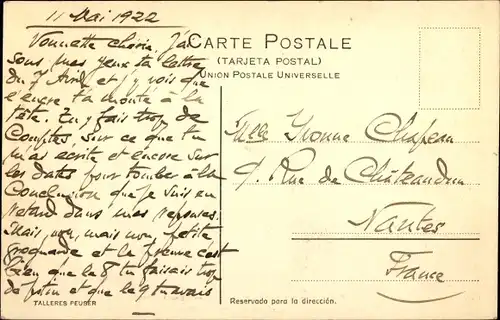 11 Mai 1922
CARTE POSTALE
(TARJETA POSTAL)
UNIÓN POSTALE UNIVERSELLE
Vonnette chérie. J'ai
sous mes yeux ta lettre
du 7 Avril et j'y vois que
l'encre t'a monté à la
tête. Tu y fais trop de
comptes sur ce que tu
m'as écrite et encore sur
les dates pour tomber à la
conclusion que je suis en
retard dans mes réponses.
Mais non, mais non petite
et la preuve c'est
bien que le 8 tu faisais trop
de et que le 9 tu avais
Melle Yvonne Chapeau
9. Rue de Châteaudun
Nantes
France
TALLERES PEUSER
Reservado para la dirección.